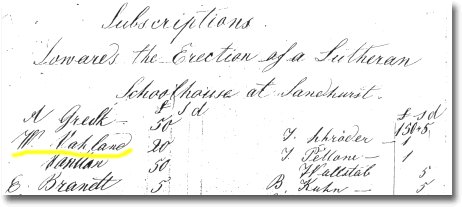 Subscriptions.
Towards the Erection of a Lutheran
Schoolhouse at Sandhurst.
£ s d
A Greelk — 50
W. Vahland 20
50
E. Brandt 5
£ s d
150 " 5
J. Schröder — 1
F. Pellom — 1
Wallstab 5
B. Kuhn — 5